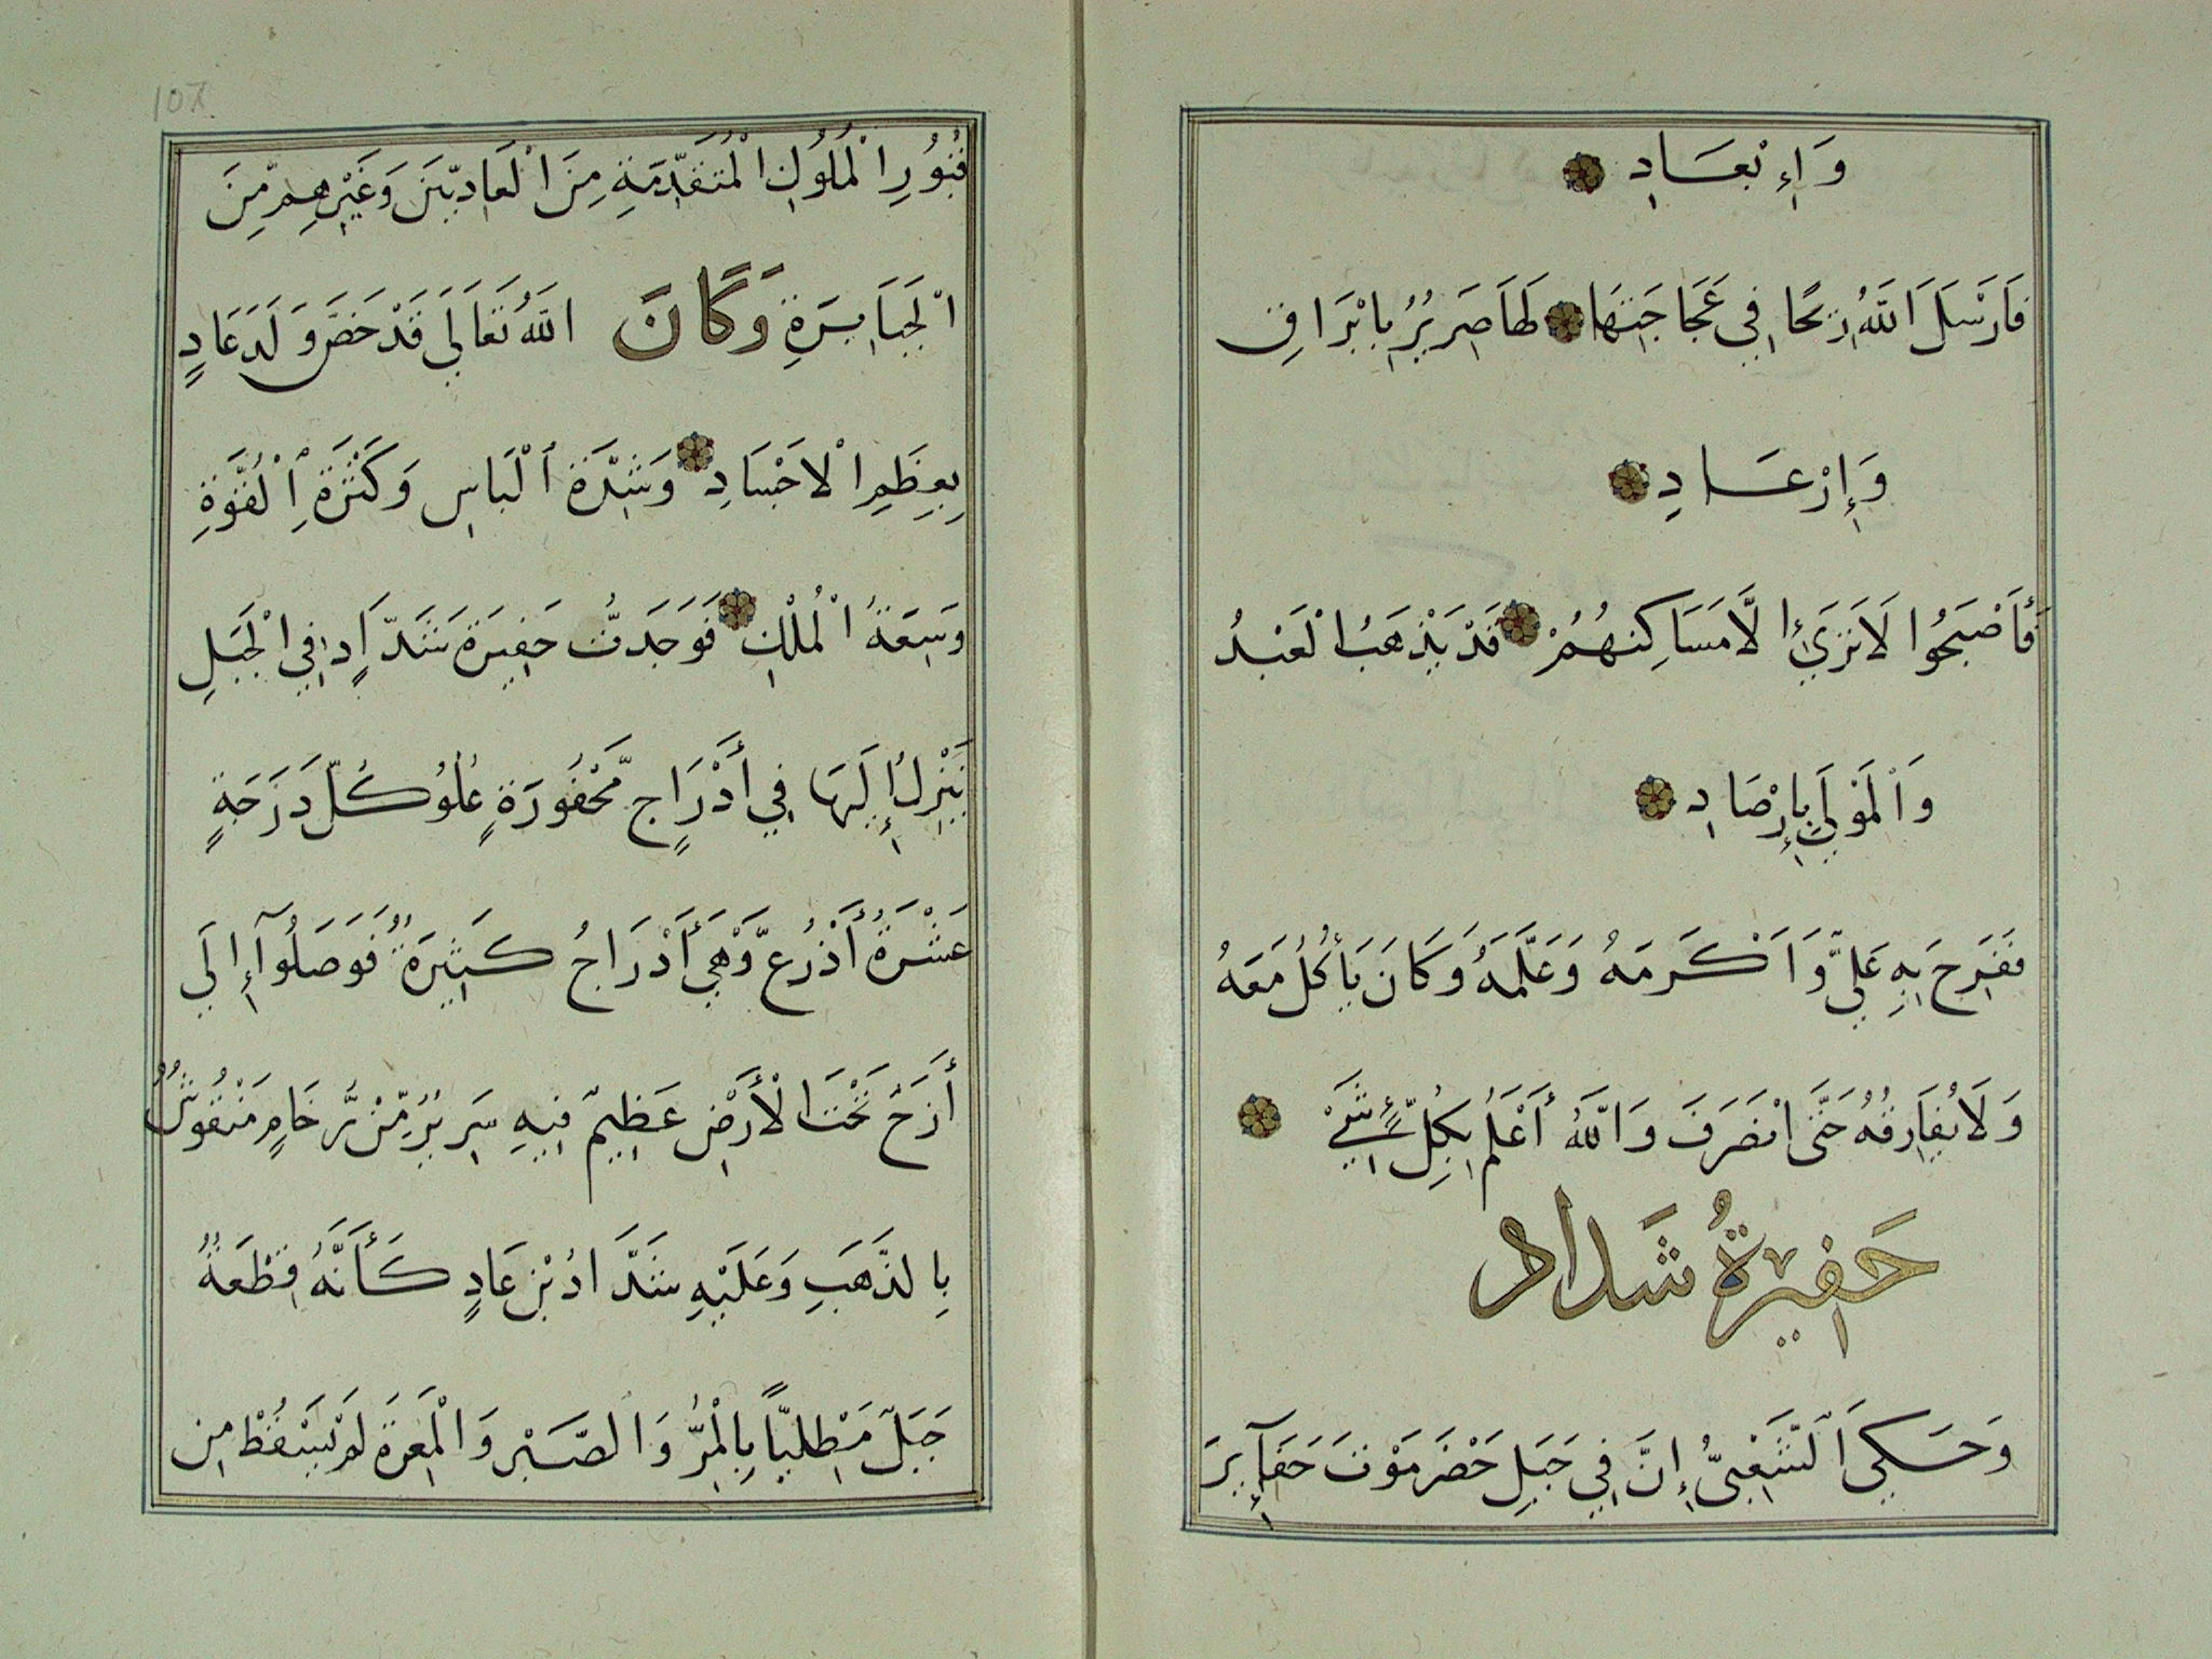 وَإِبْعَادِ
فَارْسَلَ اَللَّهُ رِيحًا فِي عَجَاجَتِهَا لَهَا صَرِيرٌ بِابْرَاقٍ
وَإِرْعَادِ
فَأَصْبَحُوا لَا تَرَىٰ إِلَّا مَسَاكِنهُمْ قَدْ يَذْهَبُ الْعَبْدُ
وَاَلْمَوْلَى بِإِرْصَادِ
ففَرِحَ بِهِ عَلِيٌّ وَاَكْرَمَهُ وَعَلَّمَهُ وَكَانَ يَأْكُلُ مَعَهُ
وَلَا يُفَارِقُهُ حَتَّى انْصَرَفَ وَاللَّهُ أَعْلَمُ بِكُلِّ شَيْءٍ
حَفِيرَةُ شَدادِ
وَحَكِيَ اَلشَّعْبِيُّ إِنَّ فِي جَبَلِ حَضْرَمَوْتَ حَفَآئِرَ
107
قُبُورِ الْمُلُوكِ الْمُتَقَدِّمَةِ مِنَ الْعَادِيّينَ وَغَيْرِهِم مِّنَ
الْجَبَابِرَةِ وَكَانَ اللَّهُ تَعَالَى قَدْ خَصَّ وَلَدَ عَادٍ
بِعِظَمِ الْاَجْسَادِ وَشِدَّةَ اَلْبَاسِ وَكَثْرَةِ الْقُوَّةِ
وَسِعَةُ الْمُلْكِ فَوَجَدتُّ حَفِيرَةَ شَدَّادٍ فِي الْجَبَلِ
يَنْزِلُ إِلَيهَا فِي أَدْرَاجٍ مَّحْفُورَةٍ عُلُوُ كُلّ دَرَجَةٍ
عَشْرَةُ أَذْرُعٍ وَّهْيَ أَدْرَاجُ كَثِيرَةٌ فَوَصَلُوآ إِلَى
أَزَجْ تَحْتَ الْأَرْضِ عَظِيمٌ فِيهِ سَرِيرٌ مِّنْ رَّخَامٍ مَنْقُوشٌ
بِالذَّهَبِ وَعَلَيْهِ شَدَّادُ بْن عَادٍ كَأَنَّهُ قِطْعَةٌ
جَبَلَ مَطْلِيّاً بِالْمِرُّ وَالصَّبَرِ وَالْمَعِرَةَ لَمْ يَسْقُطْ مِن